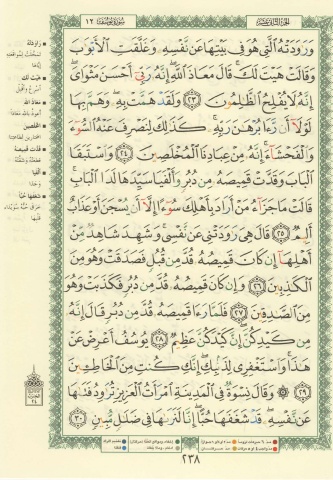 الجزء الثاني عشر
سورة يوسف ١٢
وَرَٰوَدَتْهُ ٱلَّتِى هُوَ فِى بَيْتِهَا عَن نَّفْسِهِۦ وَغَلَّقَتِ ٱلْأَبْوَٰبَ
وَقَالَتْ هَيْتَ لَكَ ۚ قَالَ مَعَاذَ ٱللَّهِ ۖ إِنَّهُۥ رَبِّىٓ أَحْسَنَ مَثْوَاىَ ۖ
إِنَّهُۥ لَا يُفْلِحُ ٱلظَّٰلِمُونَ ٢٣ وَلَقَدْ هَمَّتْ بِهِۦ ۖ وَهَمَّ بِهَا
لَوْلَآ أَن رَّءَا بُرْهَٰنَ رَبِّهِۦ ۚ كَذَٰلِكَ لِنَصْرِفَ عَنْهُ ٱلسُّوٓءَ
وَٱلْفَحْشَآءَ ۚ إِنَّهُۥ مِنْ عِبَادِنَا ٱلْمُخْلَصِينَ ٢٤ وَٱسْتَبَقَا
ٱلْبَابَ وَقَدَّتْ قَمِيصَهُۥ مِن دُبُرٍ وَأَلْفَيَا سَيِّدَهَا لَدَا ٱلْبَابِ ۚ
قَالَتْ مَا جَزَآءُ مَنْ أَرَادَ بِأَهْلِكَ سُوٓءًا إِلَّآ أَن يُسْجَنَ أَوْ عَذَابٌ
أَلِيمٌ ٢٥ قَالَ هِىَ رَٰوَدَتْنِى عَن نَّفْسِى ۚ وَشَهِدَ شَاهِدٌ مِّنْ
أَهْلِهَآ إِن كَانَ قَمِيصُهُۥ قُدَّ مِن قُبُلٍ فَصَدَقَتْ وَهُوَ مِنَ
ٱلْكَٰذِبِينَ ٢٦ وَإِن كَانَ قَمِيصُهُۥ قُدَّ مِن دُبُرٍ فَكَذَبَتْ وَهُوَ
مِنَ ٱلصَّٰدِقِينَ ٢٧ فَلَمَّا رَءَا قَمِيصَهُۥ قُدَّ مِن دُبُرٍ قَالَ إِنَّهُۥ
مِن كَيْدِكُنَّ ۖ إِنَّ كَيْدَكُنَّ عَظِيمٌ ٢٨ يُوسُفُ أَعْرِضْ عَنْ
هَٰذَا ۚ وَٱسْتَغْفِرِى لِذَنۢبِكِ ۖ إِنَّكِ كُنتِ مِنَ ٱلْخَاطِـِٔينَ
٢٩ ۞ وَقَالَ نِسْوَةٌ فِى ٱلْمَدِينَةِ ٱمْرَأَتُ ٱلْعَزِيزِ تُرَٰوِدُ فَتَىٰهَا
عَن نَّفْسِهِۦ ۖ قَدْ شَغَفَهَا حُبًّا ۖ إِنَّا لَنَرَىٰهَا فِى ضَلَٰلٍ مُّبِينٍ ٣٠
٢٣٨
راودته
هيت لك
معاذ الله
المخلصين
قدت قميصه
ألفيا
وجدا
شغفها حبا
الحزب
٢٤